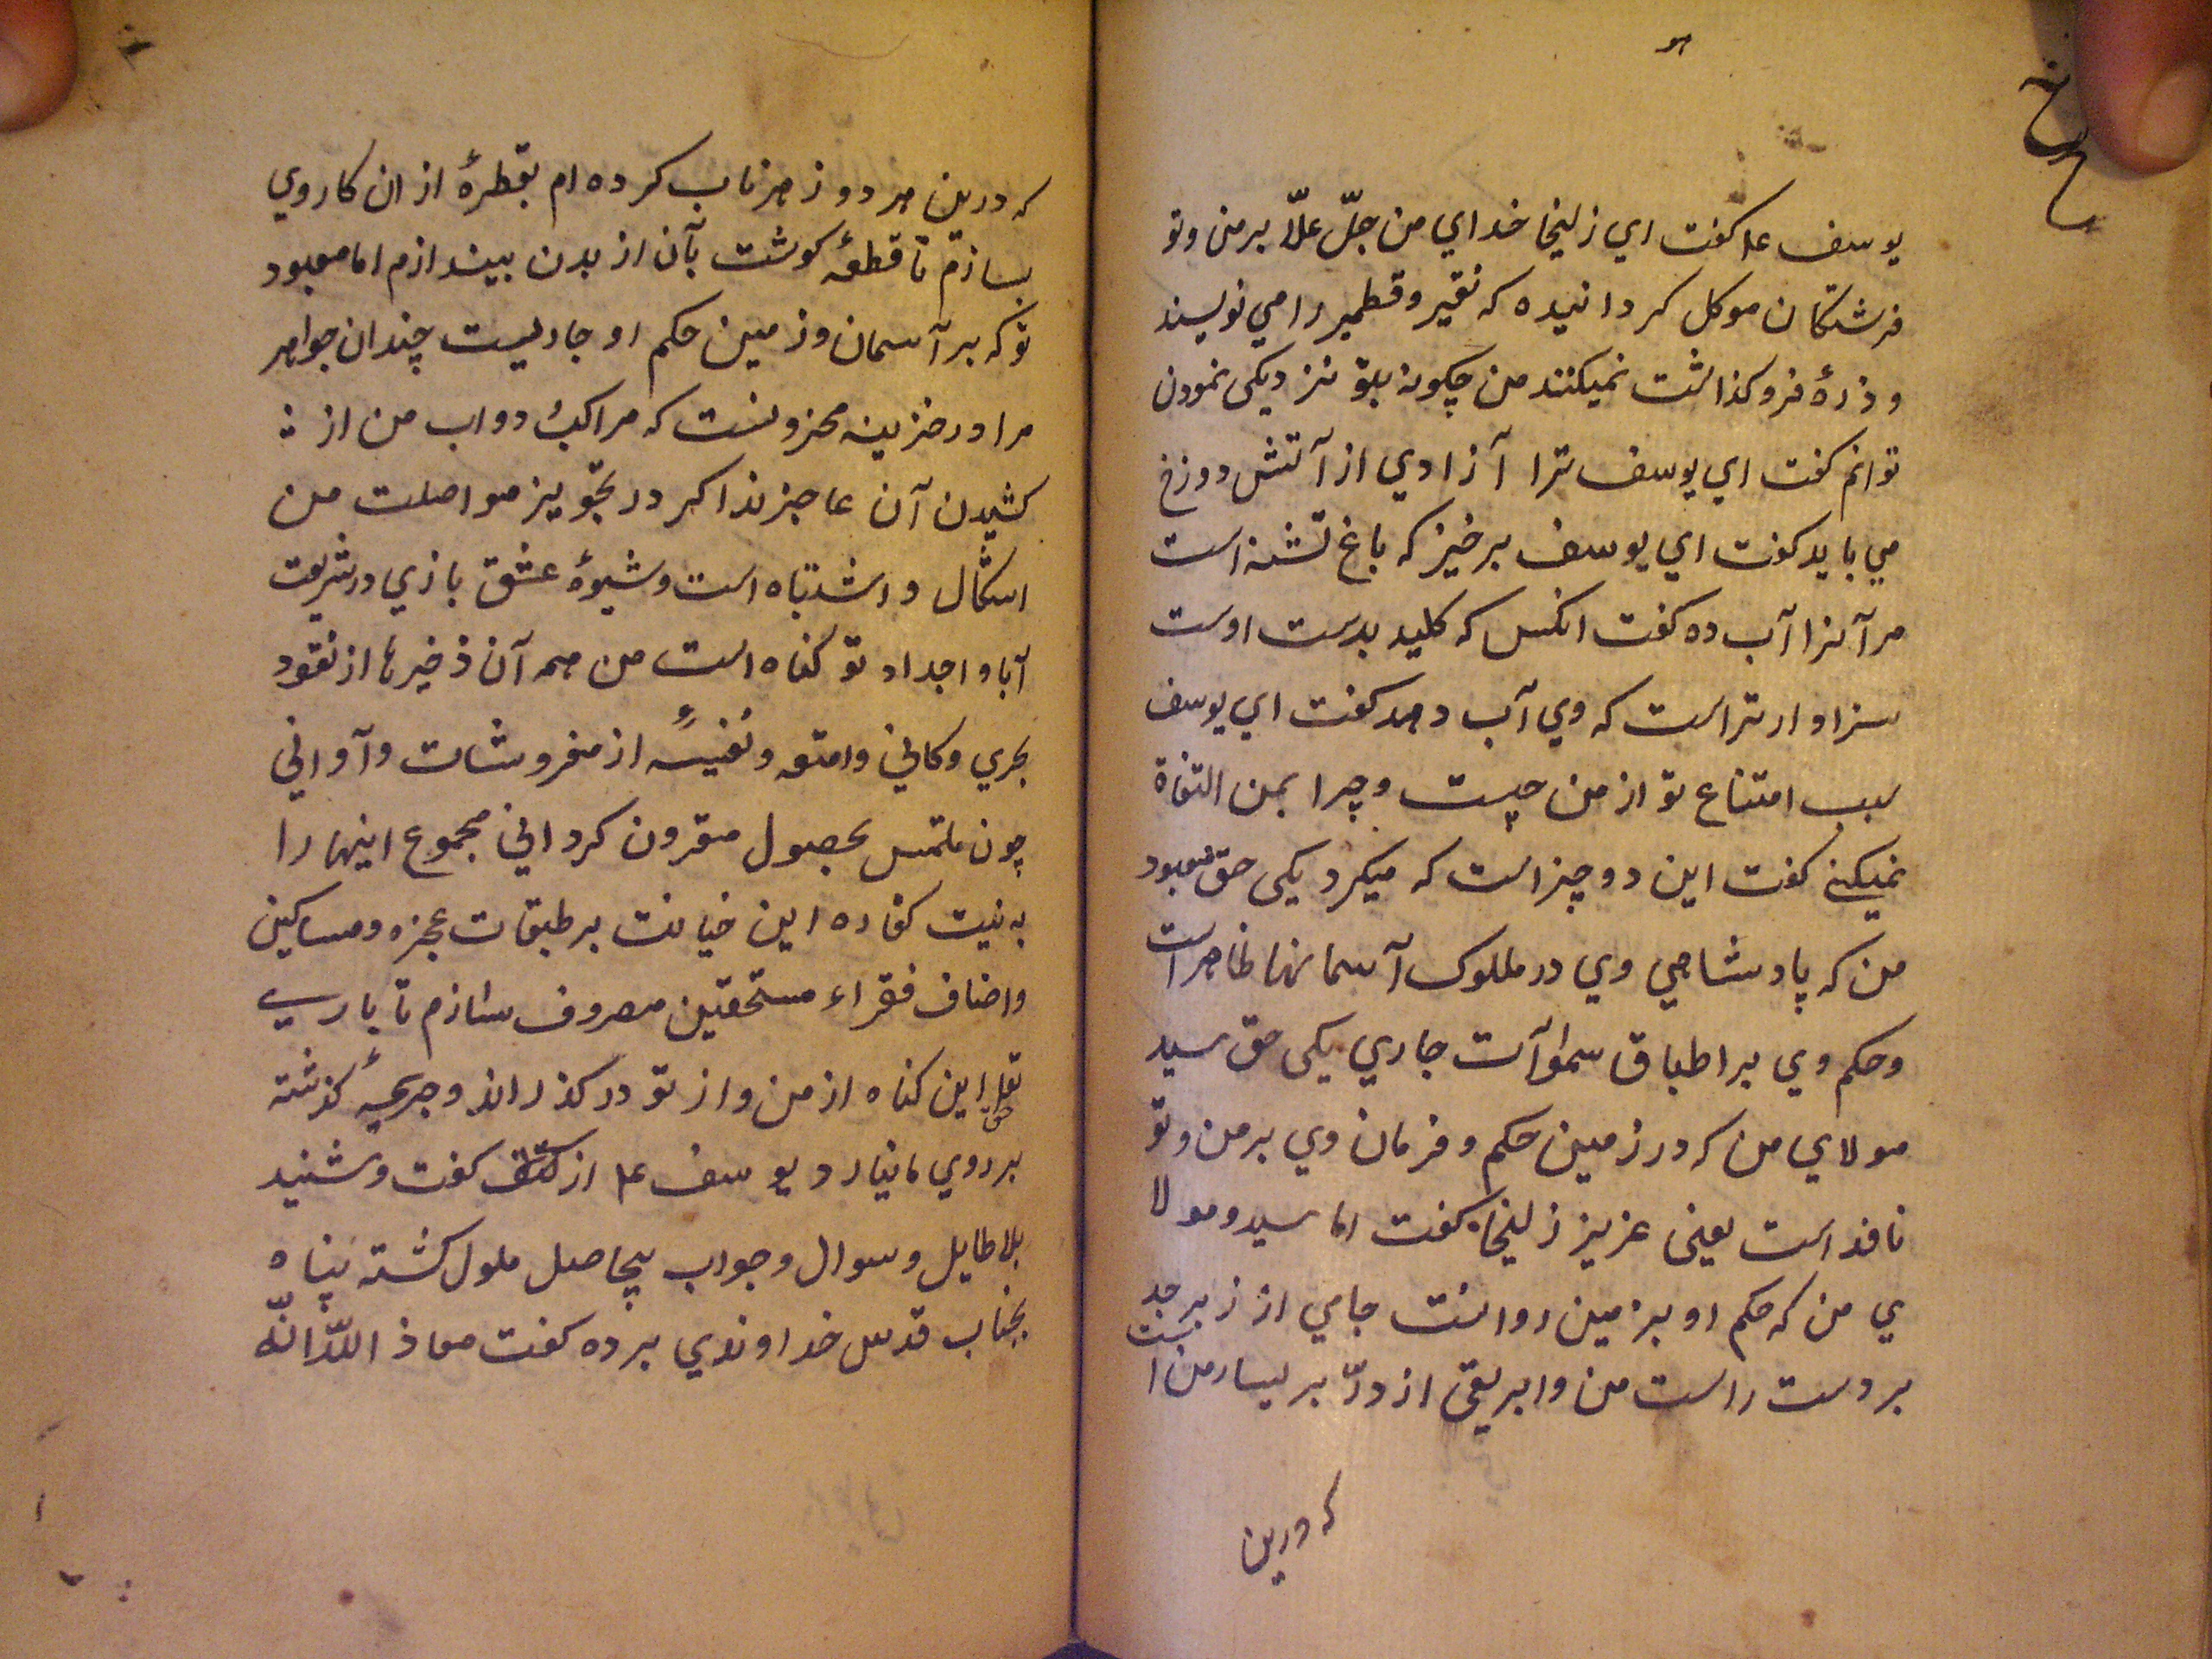 هو
یوسف ع م کفت اي زلیخا خداي من جلّ علّا بر من و تو
فرشتکان موکل کردانیده که نقیر و قطمیر را مي نویسند
و ذرهٔ فروکذاشت نمیکنند من چکونه بتو نزدیکی نمودن
توانم کفت اي یوسف ترا آزادي از آتش دوزخ
مي باید کفت اي یوسف برخیز که باغ تشنه است
مر آنرا آب ده کفت انکس که کلید بدست اوست
سزاوارتر است که وي آب دهد کفت اي یوسف
سبب امتناع تو از من چیست و چرا بمن التفاة
نمیکني کفت این دو چیز است که میکرد یکی حق معبود
من که پادشاهي وي در ملکوک آسمانها ظاهر است
و حکم وي بر اطباق سموآت جاري یکی حق سید
مولاي من که در زمین حکم و فرمان وي بر من و تو
نافذ است یعنی عزیز زلیخا کفت اما سید و مولا
ي من که حکم او بر زمین روانست جامي از زبرجد
بر دست راست من و ابریقی از درّ بر یسار من است
که درین
که درین هر دو زهر ناب کرده ام بقطرهٔ از ان کار وي
بسازم تا قطعهٔ کوشت بآن از بدن بیندازم اما معبود
تو که بر آسمان و زمین حکم او جاریست چندان جواهر
مرا در خزینه مخزونست که مراکب دواب من از
کشیدن آن عاجزند اکر در تجویز مواصلت من
اشکال و اشتباه است و شیوهٔ عشق بازي در شریعت
آبا و اجداد تو کناه است من همه آن ذخیرها از نقود
بحري و کاني و امتعه و نفیسه از مفروشات و آواني
چون ملتمس بحصول مقرون کرداني مجموع اینها را
به نیت کفاره این خیانت بر طبقات عجزه و مساکین
و اضاف فقراء مستحقین مصروف سازم تا باري
تعالی این کناه از من و از تو درکذراند و جریمهٔ کذشته
بر روي ما نیارد یوسف ع م از کفت و شنید
بلا طایل و سوال و جواب بیحاصل ملول کشته پناه
بجناب قدس خداوندي برده کفت معاذ اللّه انّه